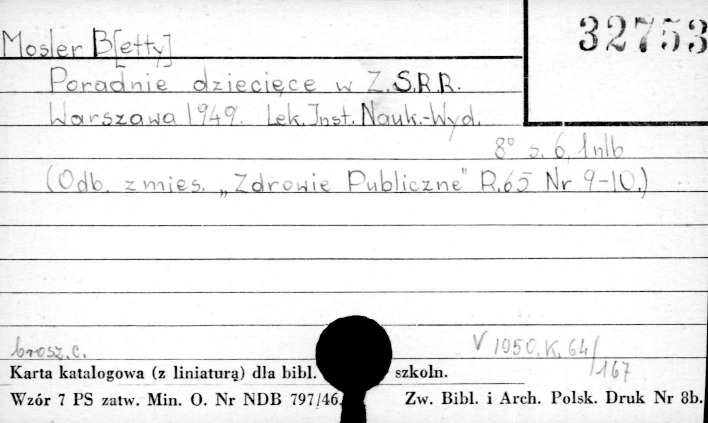 32753
Mosler B[etty]
Poradnie dziecięce w Z.S.R.R.
Warszawa 1949. Lek. Inst. Nauk.-Wyd.
8° s. 6, 1 nlb
(Odb. z mies. „Zdrowie Publiczne" R.65 Nr 9-10.)
brosz. c.
V 1950.K.64/167
Karta katalogowa (z liniaturą) dla bibl. szkoln.
Wzór 7 PS zatw. Min. O. Nr NDB 797/46. Zw. Bibl. i Arch. Polsk. Druk Nr 8b.